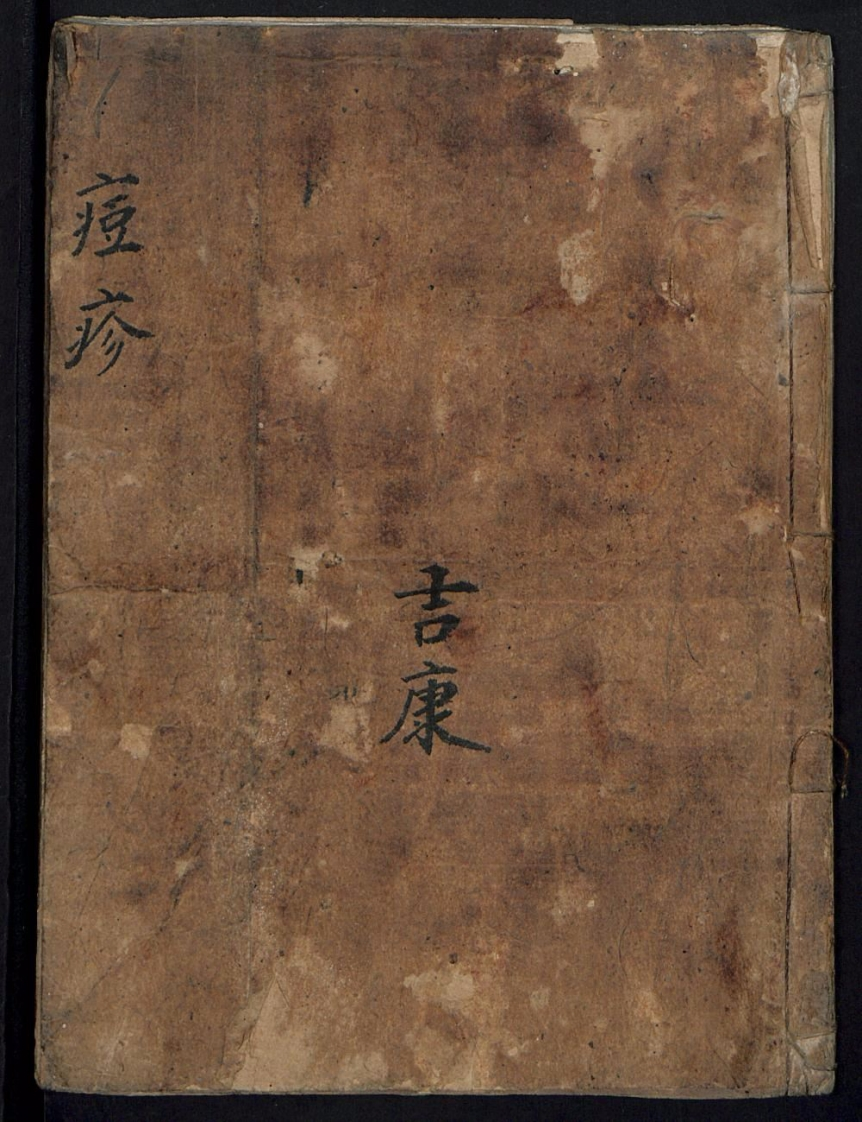 吉康
痘疹